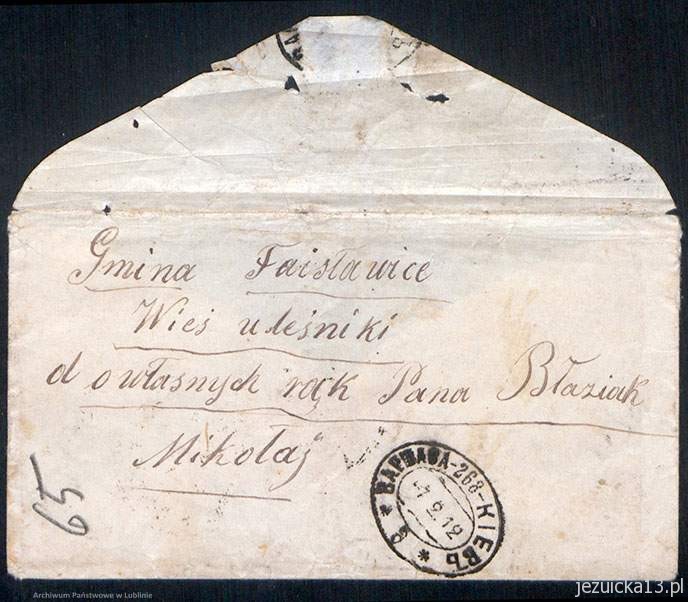 Gmina Faisławice
Wieś uleśniki
d owłasnych rąk Pana Błaziak
Mikołaj
65
ВАРШАВА-268-КІЕВЪ
7.2.12
Archiwum Państwowe w Lublinie
jezuicka13.pl